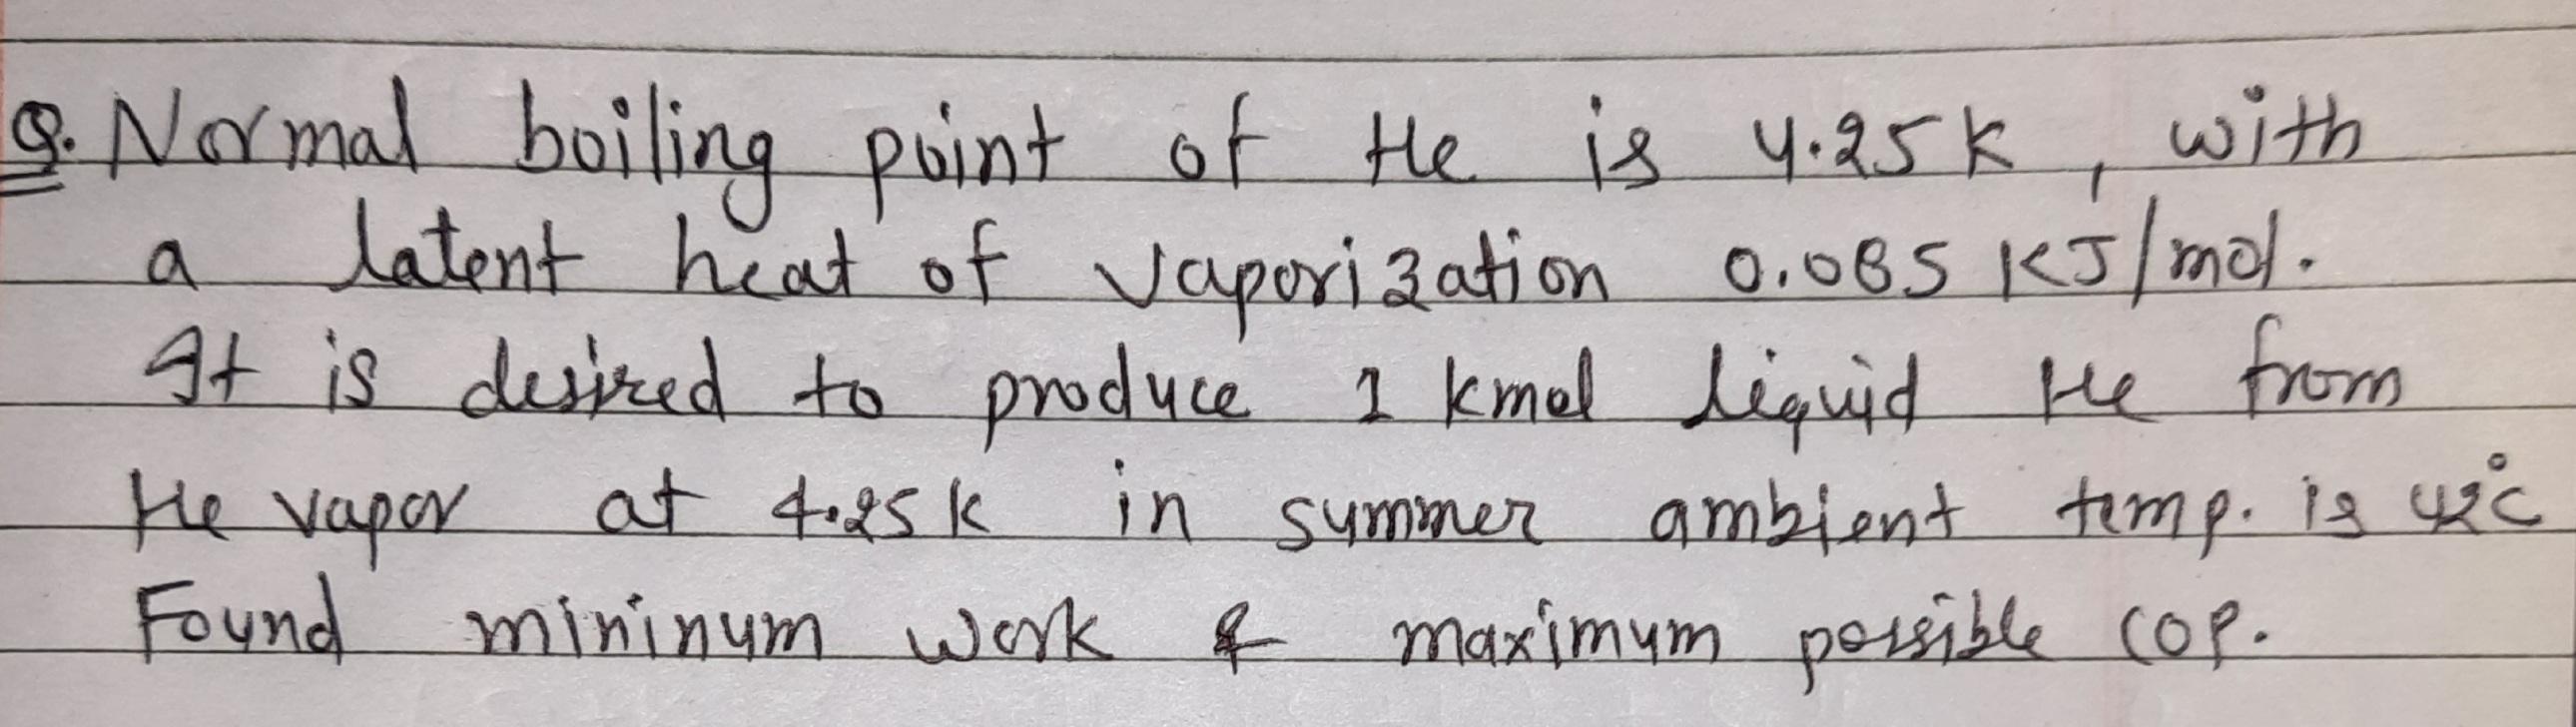 Q. Normal boiling point of He is 4.25K, with
a latent heat of vaporization 0.085 KJ/mol.
It is desired to produce 1 kmol liquid He from
He vapor at 4.25K in summer ambient temp. is 42°C
Found mininum work & maximum possible COP.